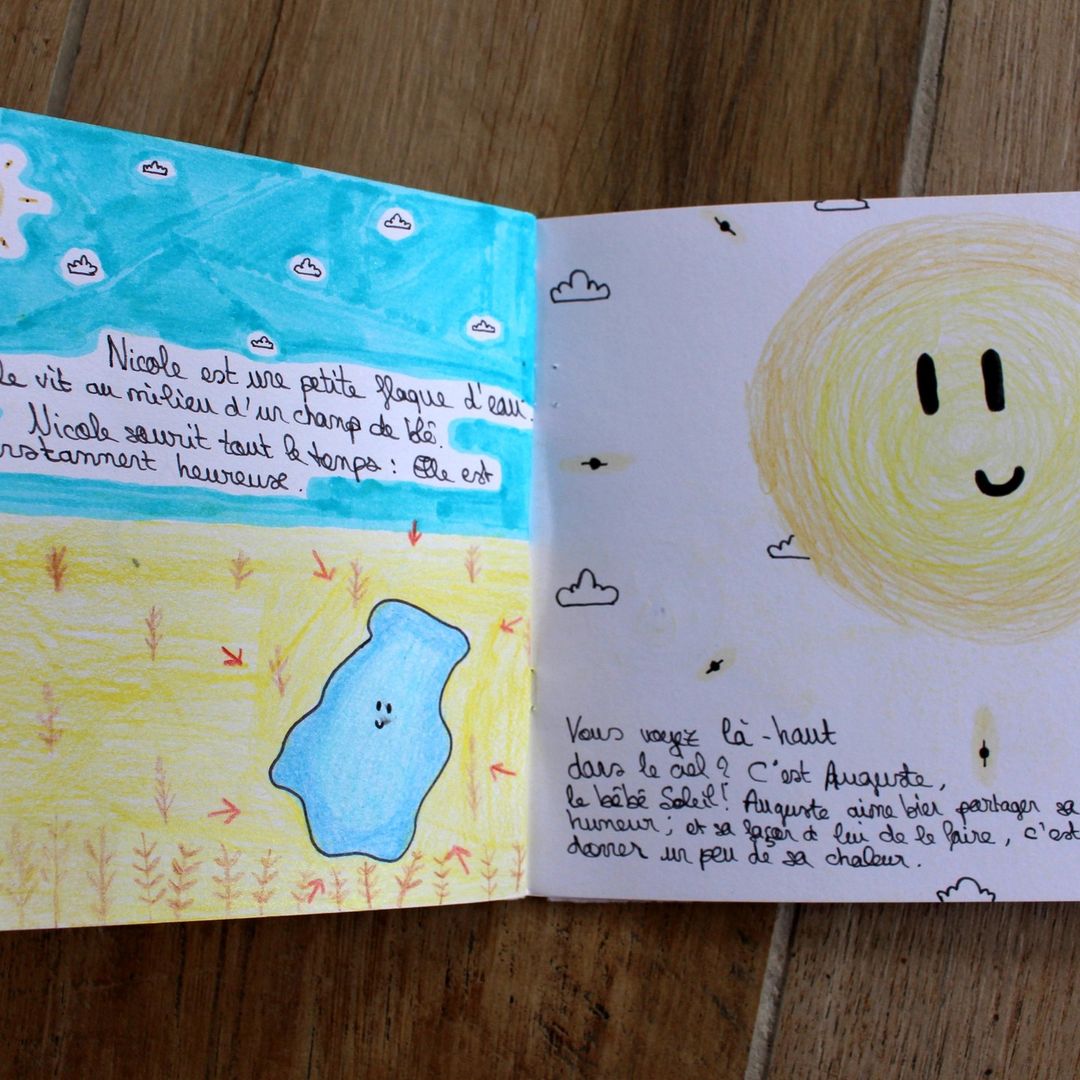 Nicole est une petite flaque d'eau.
le vit au milieu d'un champ de blé.
Nicole sourit tout le temps : Elle est
nstamment heureuse.
Vous voyez là-haut
dans le ciel ? C'est Auguste,
le bébé Soleil ! Auguste aime bien partager sa
humeur ; et sa façon à lui de le faire, c'est
donner un peu de sa chaleur.